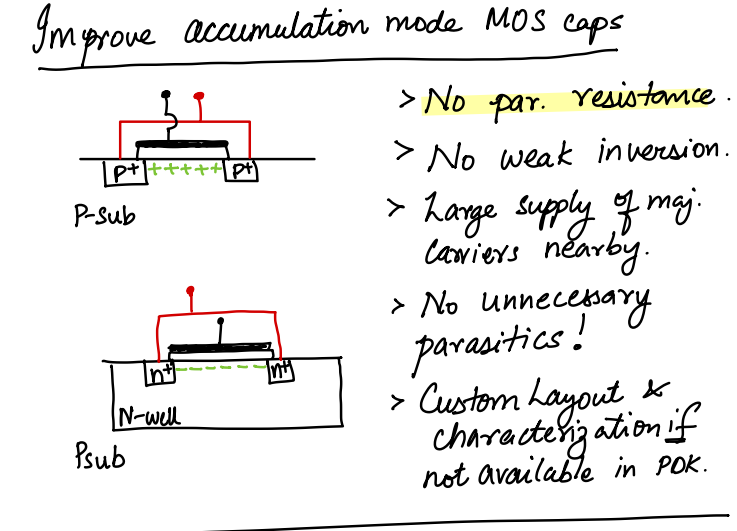 Improve accumulation mode MOS caps
> No par. resistance.
> No weak inversion.
> Large supply of maj.
carriers nearby.
> No unnecessary
parasitics!
> Custom Layout &
characterization if
not available in PDK.
P+ +++++ P+
P-sub
n+ ----- n+
N-well
Psub